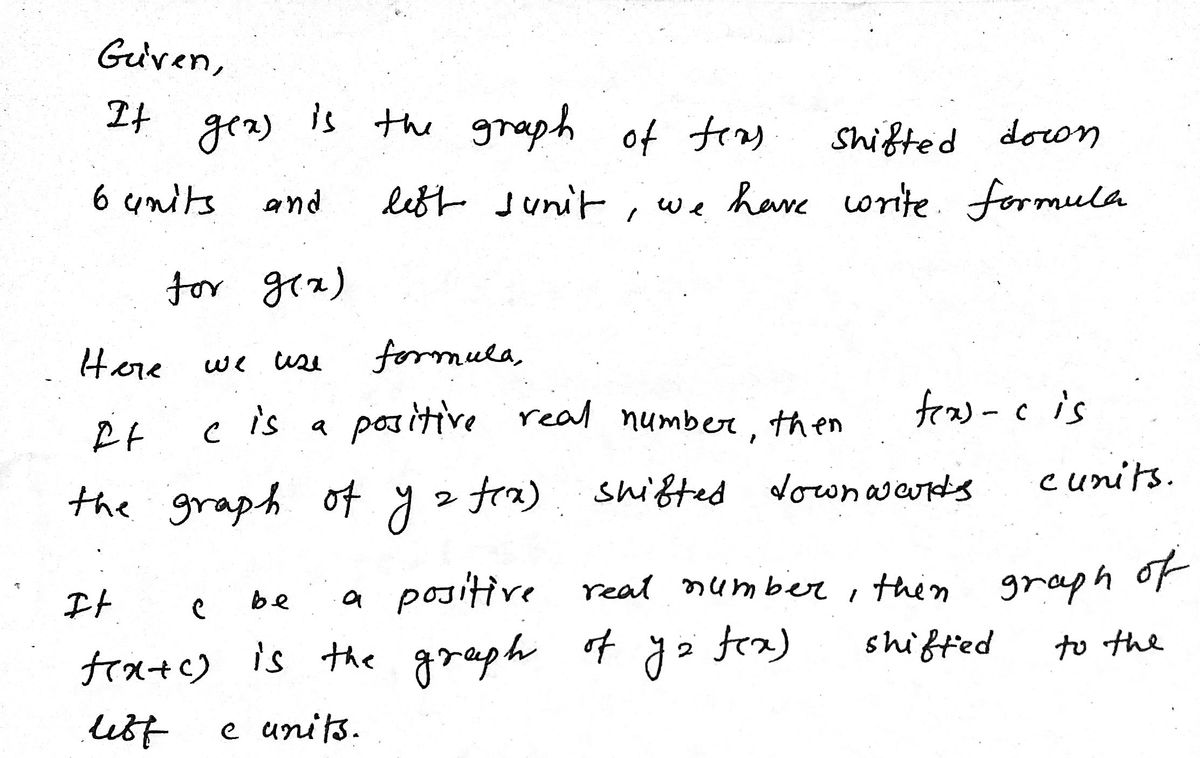 Given,
If g(x) is the graph of f(x) shifted down
6 units and left 1 unit, we have write formula
for g(x)
Here we use formula,
If c is a positive real number, then f(x) - c is
the graph of y = f(x) shifted downwards c units.
If c be a positive real number, then graph of
f(x+c) is the graph of y = f(x) shifted to the
left c units.